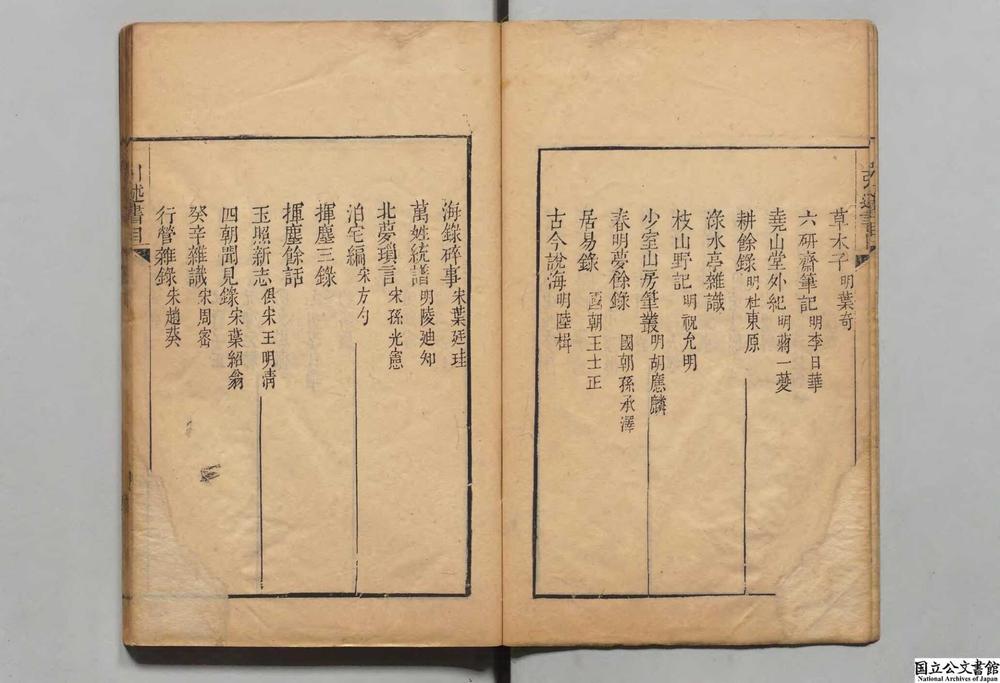 草木子 明葉奇
六研齋筆記 明李日華
堯山堂外紀 明蔣一葵
耕餘錄 明杜東原
淥水亭雜識
枝山野記 明祝允明
少室山房筆叢 明胡應麟
春明夢餘錄 國朝孫承澤
居易錄 國朝王士正
古今說海 明陸楫
海錄碎事 宋葉廷珪
萬姓統譜 明陵迪知
北夢瑣言 宋孫光憲
泊宅編 宋方勺
揮塵三錄
揮塵餘話
玉照新志 俱宋王明清
四朝聞見錄 宋葉紹翁
癸辛雜識 宋周密
行營雜錄 宋趙葵
引述書目
国立公文書館
National Archives of Japan